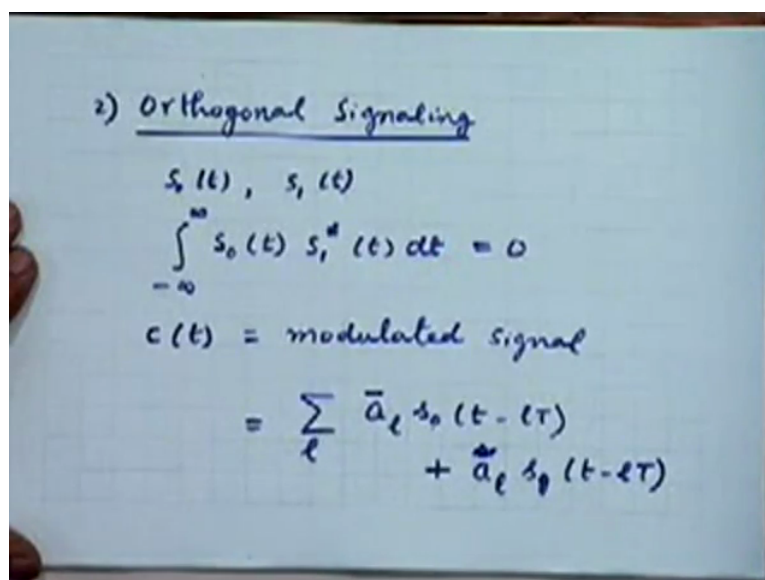 2) Orthogonal Signaling
s₀(t), s₁(t)
∫_{-∞}^{∞} s₀(t) s₁*(t) dt = 0
c(t) = modulated signal
= Σ_ℓ ā_ℓ s₀(t-ℓT)
+ a_ℓ s₁(t-ℓT)